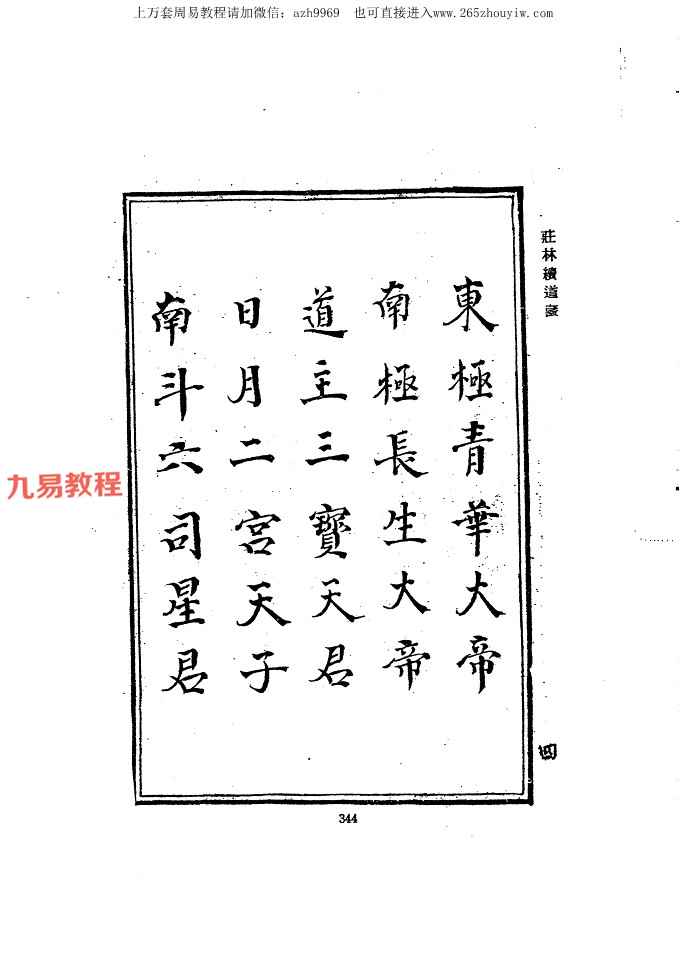 上万套周易教程请加微信：azh9969 也可直接进入www.265zhouyiw.com
莊林續道藏
東極青華大帝
南極長生大帝
道主三寶天君
日月二宮天子
南斗六司星君
九易教程
四
344